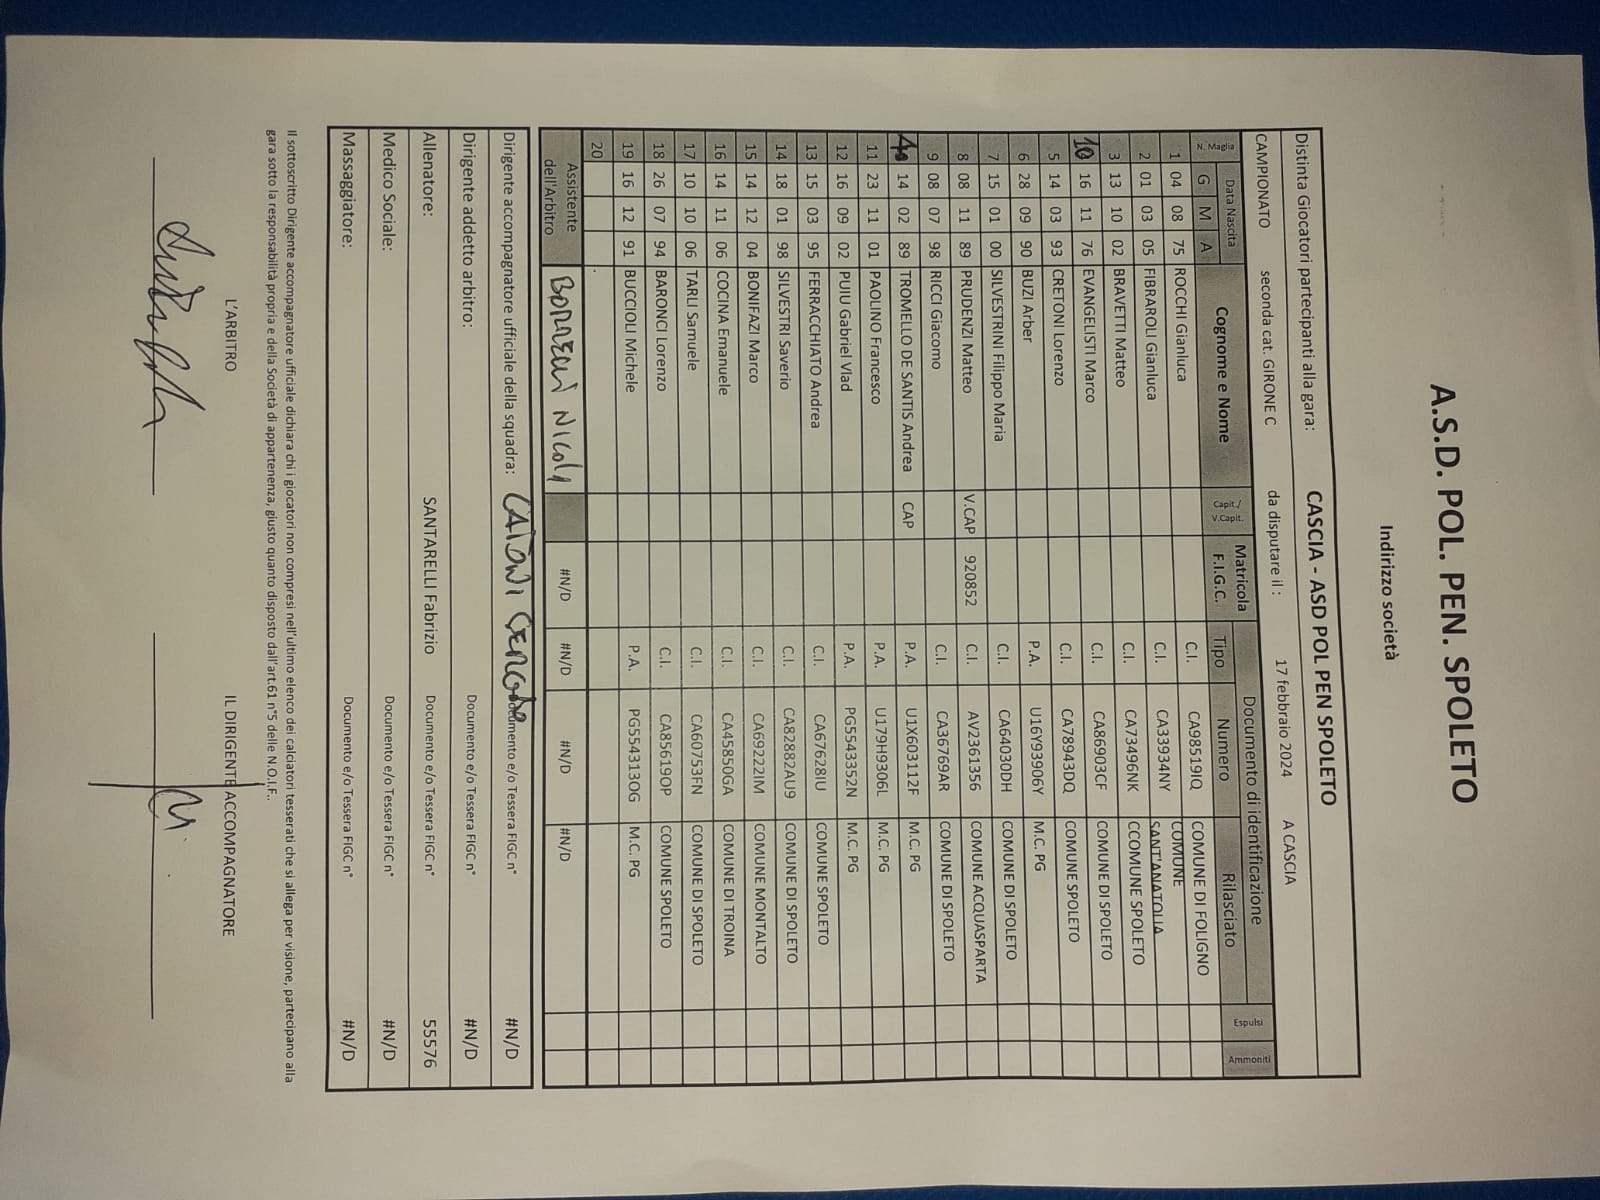 A.S.D. POL. PEN. SPOLETO
Indirizzo società
Distinta Giocatori partecipanti alla gara: CASCIA - ASD POL PEN SPOLETO
CAMPIONATO seconda cat. GIRONE C da disputare il : 17 febbraio 2024 A CASCIA
N. Maglia Data Nascita Cognome e Nome Capit./ V.Capit. Matricola F.I.G.C. Documento di identificazione Espulsi Ammoniti
G M A Tipo Numero Rilasciato
1 04 08 75 ROCCHI Gianluca C.I. CA98519IQ COMUNE DI FOLIGNO
2 01 03 05 FIBRAROLI Gianluca C.I. CA33934NY COMUNE SANT'ANATOLIA
3 13 10 02 BRAVETTI Matteo C.I. CA73496NK CCOMUNE SPOLETO
10 16 11 76 EVANGELISTI Marco C.I. CA86903CF COMUNE DI SPOLETO
5 14 03 93 CRETONI Lorenzo C.I. CA78943DQ COMUNE SPOLETO
6 28 09 90 BUZI Arber P.A. U16Y93906Y M.C. PG
7 15 01 00 SILVESTRINI Filippo Maria C.I. CA64030DH COMUNE DI SPOLETO
8 08 11 89 PRUDENZI Matteo V.CAP 920852 C.I. AV2361356 COMUNE ACQUASPARTA
9 08 07 98 RICCI Giacomo C.I. CA36769AR COMUNE DI SPOLETO
14 02 89 TROMELLO DE SANTIS Andrea CAP P.A. U1X603112F M.C. PG
11 23 11 01 PAOLINO Francesco P.A. U179H9306L M.C. PG
12 16 09 02 PUIU Gabriel Vlad P.A. PG5543352N M.C. PG
13 15 03 95 FERRACCHIATO Andrea C.I. CA67628IU COMUNE SPOLETO
14 18 01 98 SILVESTRI Saverio C.I. CA82882AU9 COMUNE DI SPOLETO
15 14 12 04 BONIFAZI Marco C.I. CA69222IM COMUNE MONTALTO
16 14 11 06 COCINA Emanuele C.I. CA45850GA COMUNE DI TROINA
17 10 10 06 TARLI Samuele C.I. CA60753FN COMUNE DI SPOLETO
18 26 07 94 BARONCI Lorenzo C.I. CA85619OP COMUNE SPOLETO
19 16 12 91 BUCCIOLI Michele P.A. PG554313OG M.C. PG
20
Assistente dell'Arbitro Nicola #N/D #N/D #N/D #N/D
Dirigente accompagnatore ufficiale della squadra: Documento e/o Tessera FIGC n° #N/D
Dirigente addetto arbitro: Documento e/o Tessera FIGC n° #N/D
Allenatore: SANTARELLI Fabrizio Documento e/o Tessera FIGC n° 55576
Medico Sociale: Documento e/o Tessera FIGC n° #N/D
Massaggiatore: Documento e/o Tessera FIGC n° #N/D
Il sottoscritto Dirigente accompagnatore ufficiale dichiara chi i giocatori non compresi nell'ultimo elenco dei calciatori tesserati che si allega per visione, partecipano alla
gara sotto la responsabilità propria e della Società di appartenenza, giusto quanto disposto dall'art.61 n°5 delle N.O.I.F..
L'ARBITRO IL DIRIGENTE ACCOMPAGNATORE